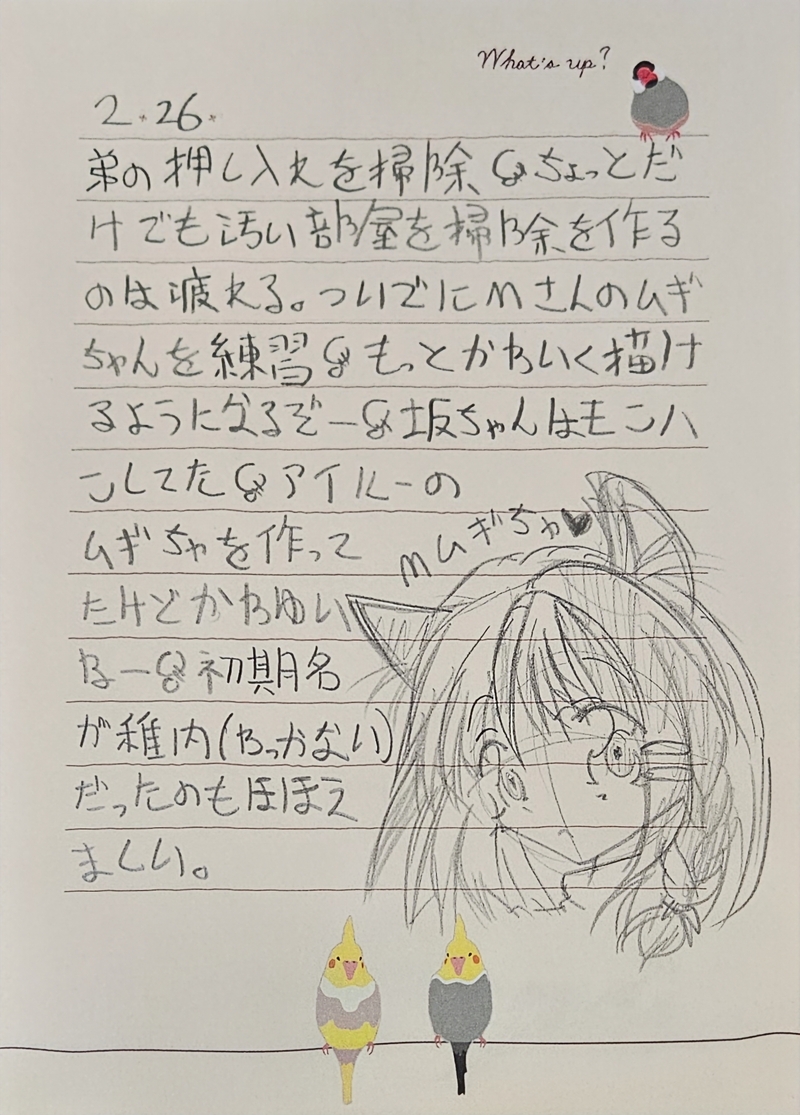 What's up?
2.26.
弟の押し入れを掃除 ちょっとだ
けでも汚い部屋を掃除を作る
のは疲れる。ついでにMさんのムギ
ちゃんを練習 もっとかわいく描け
るようになるぞー 坂ちゃんはモンハ
ンしてた アイルーの
ムギちゃを作って
たけどかわゆい
なー 初期名
が稚内(わっかない)
だったのもほほえ
ましい。
Mムギちゃ♥